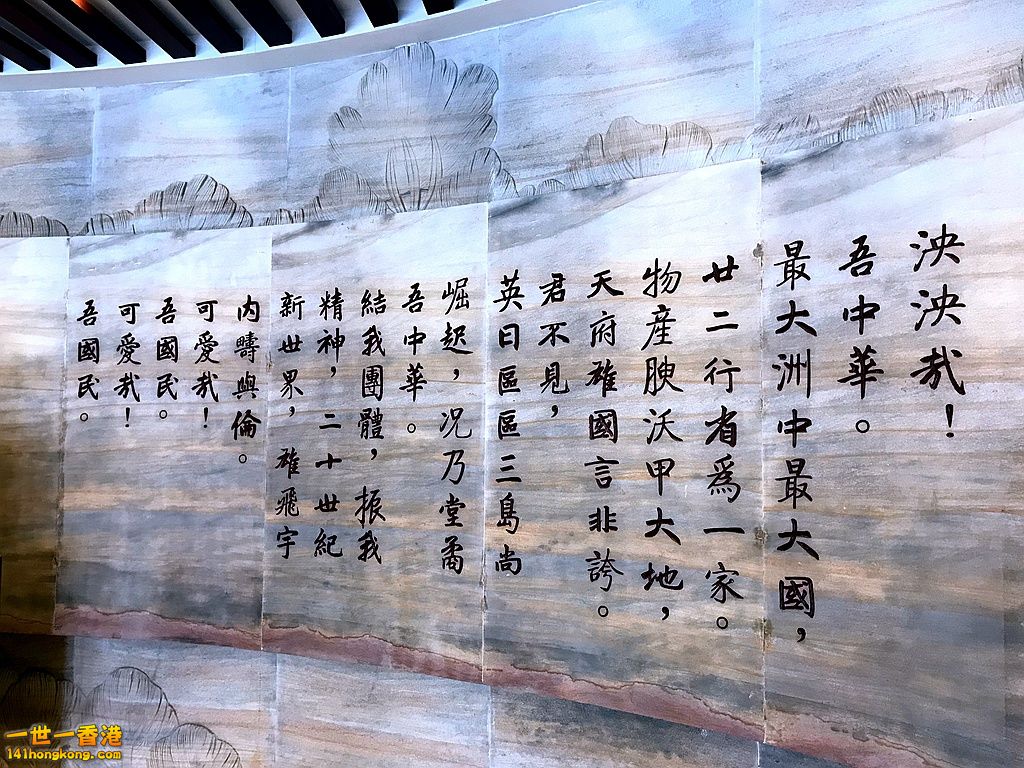 泱泱哉！
吾中華。
最大洲中最大國，
廿二行省爲一家。
物産腴沃甲大地，
天府雄國言非誇。
君不見，
英日區區三島尚
崛起，况乃堂矞
吾中華。
結我團體，振我
精神，二十世紀
新世界，雄飛宇
内疇與倫。
可愛哉！
吾國民。
可愛哉！
吾國民。
一世一香港
141hongkong.com